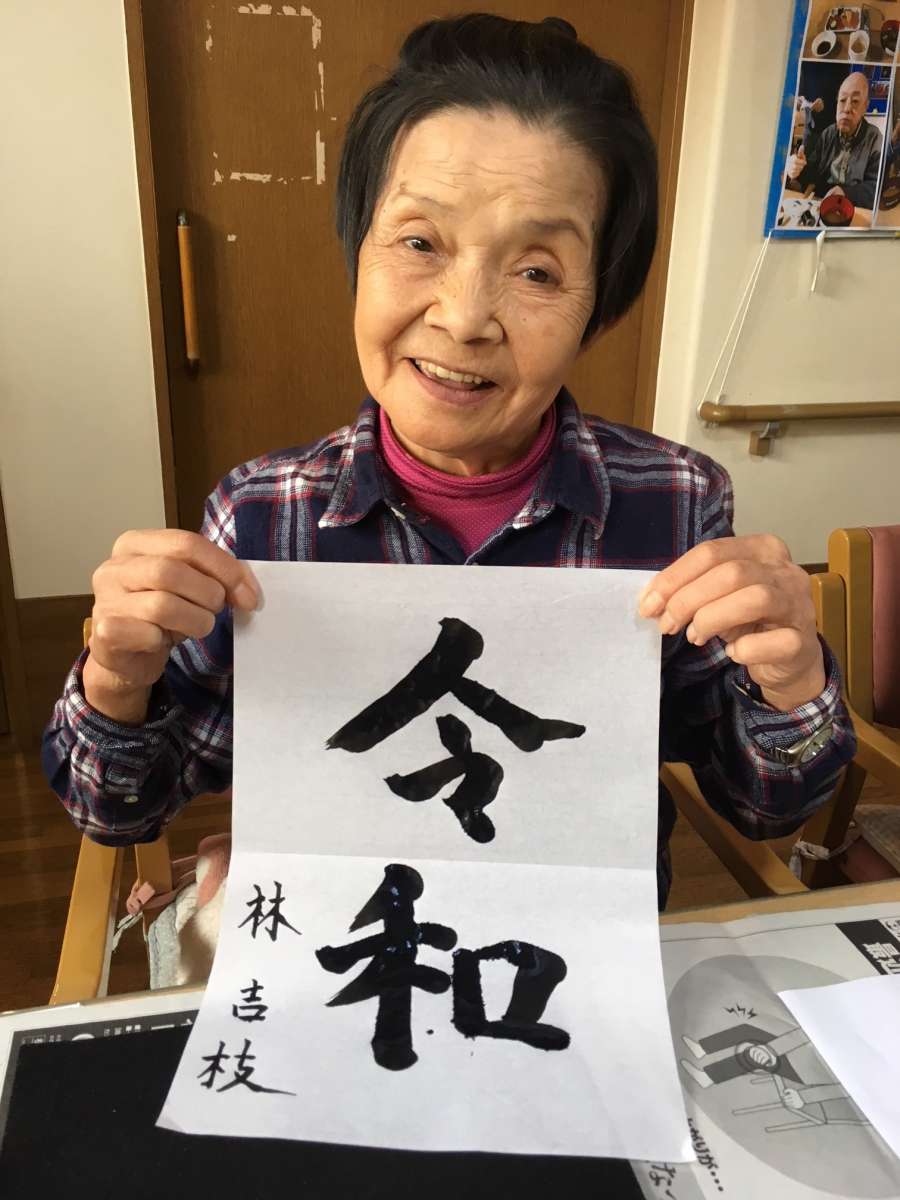 令和
林吉枝